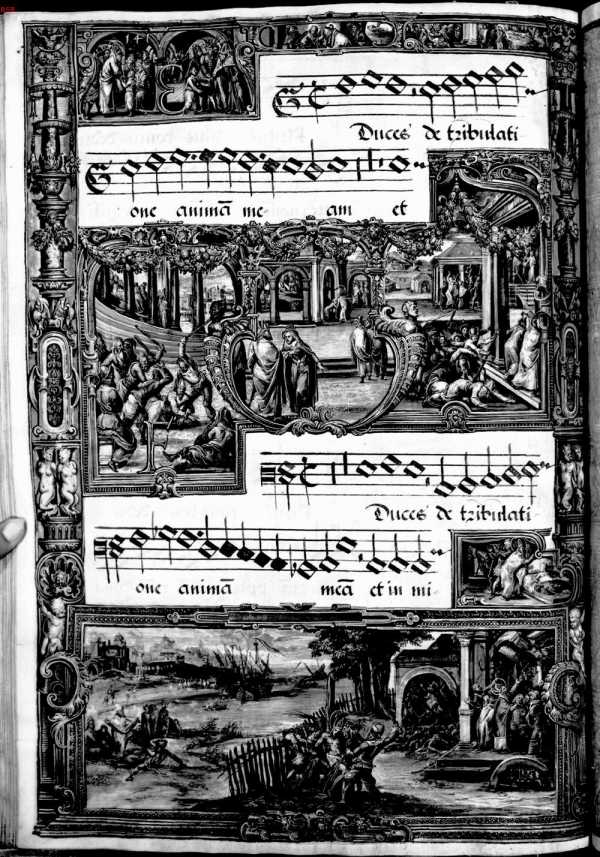 Duces de tribulati-
one animā me am et
Duces de tribulati-
one animā meā et in mi-